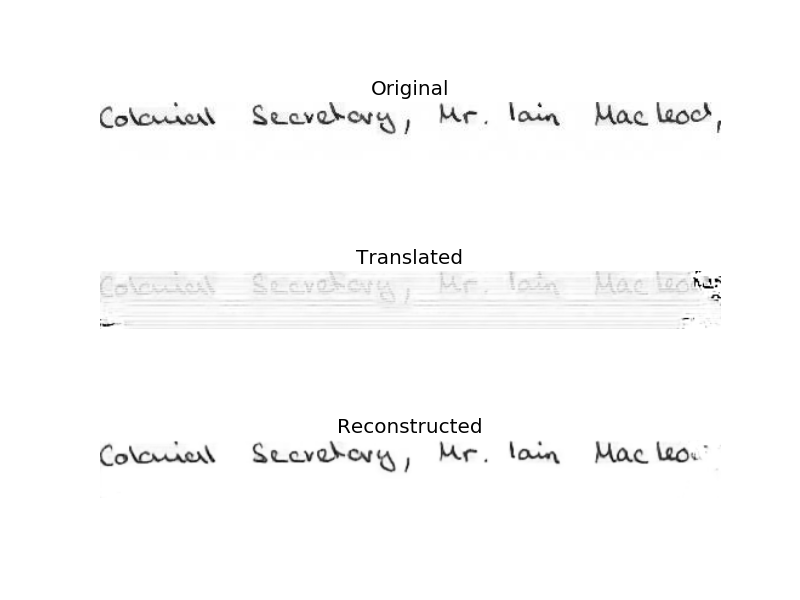 Original
Colonial Secretary, Mr. Iain Macleod,
Translated
Colonial Secretary, Mr. Iain Macleo
Reconstructed
Colonial Secretary, Mr. Iain Macleo